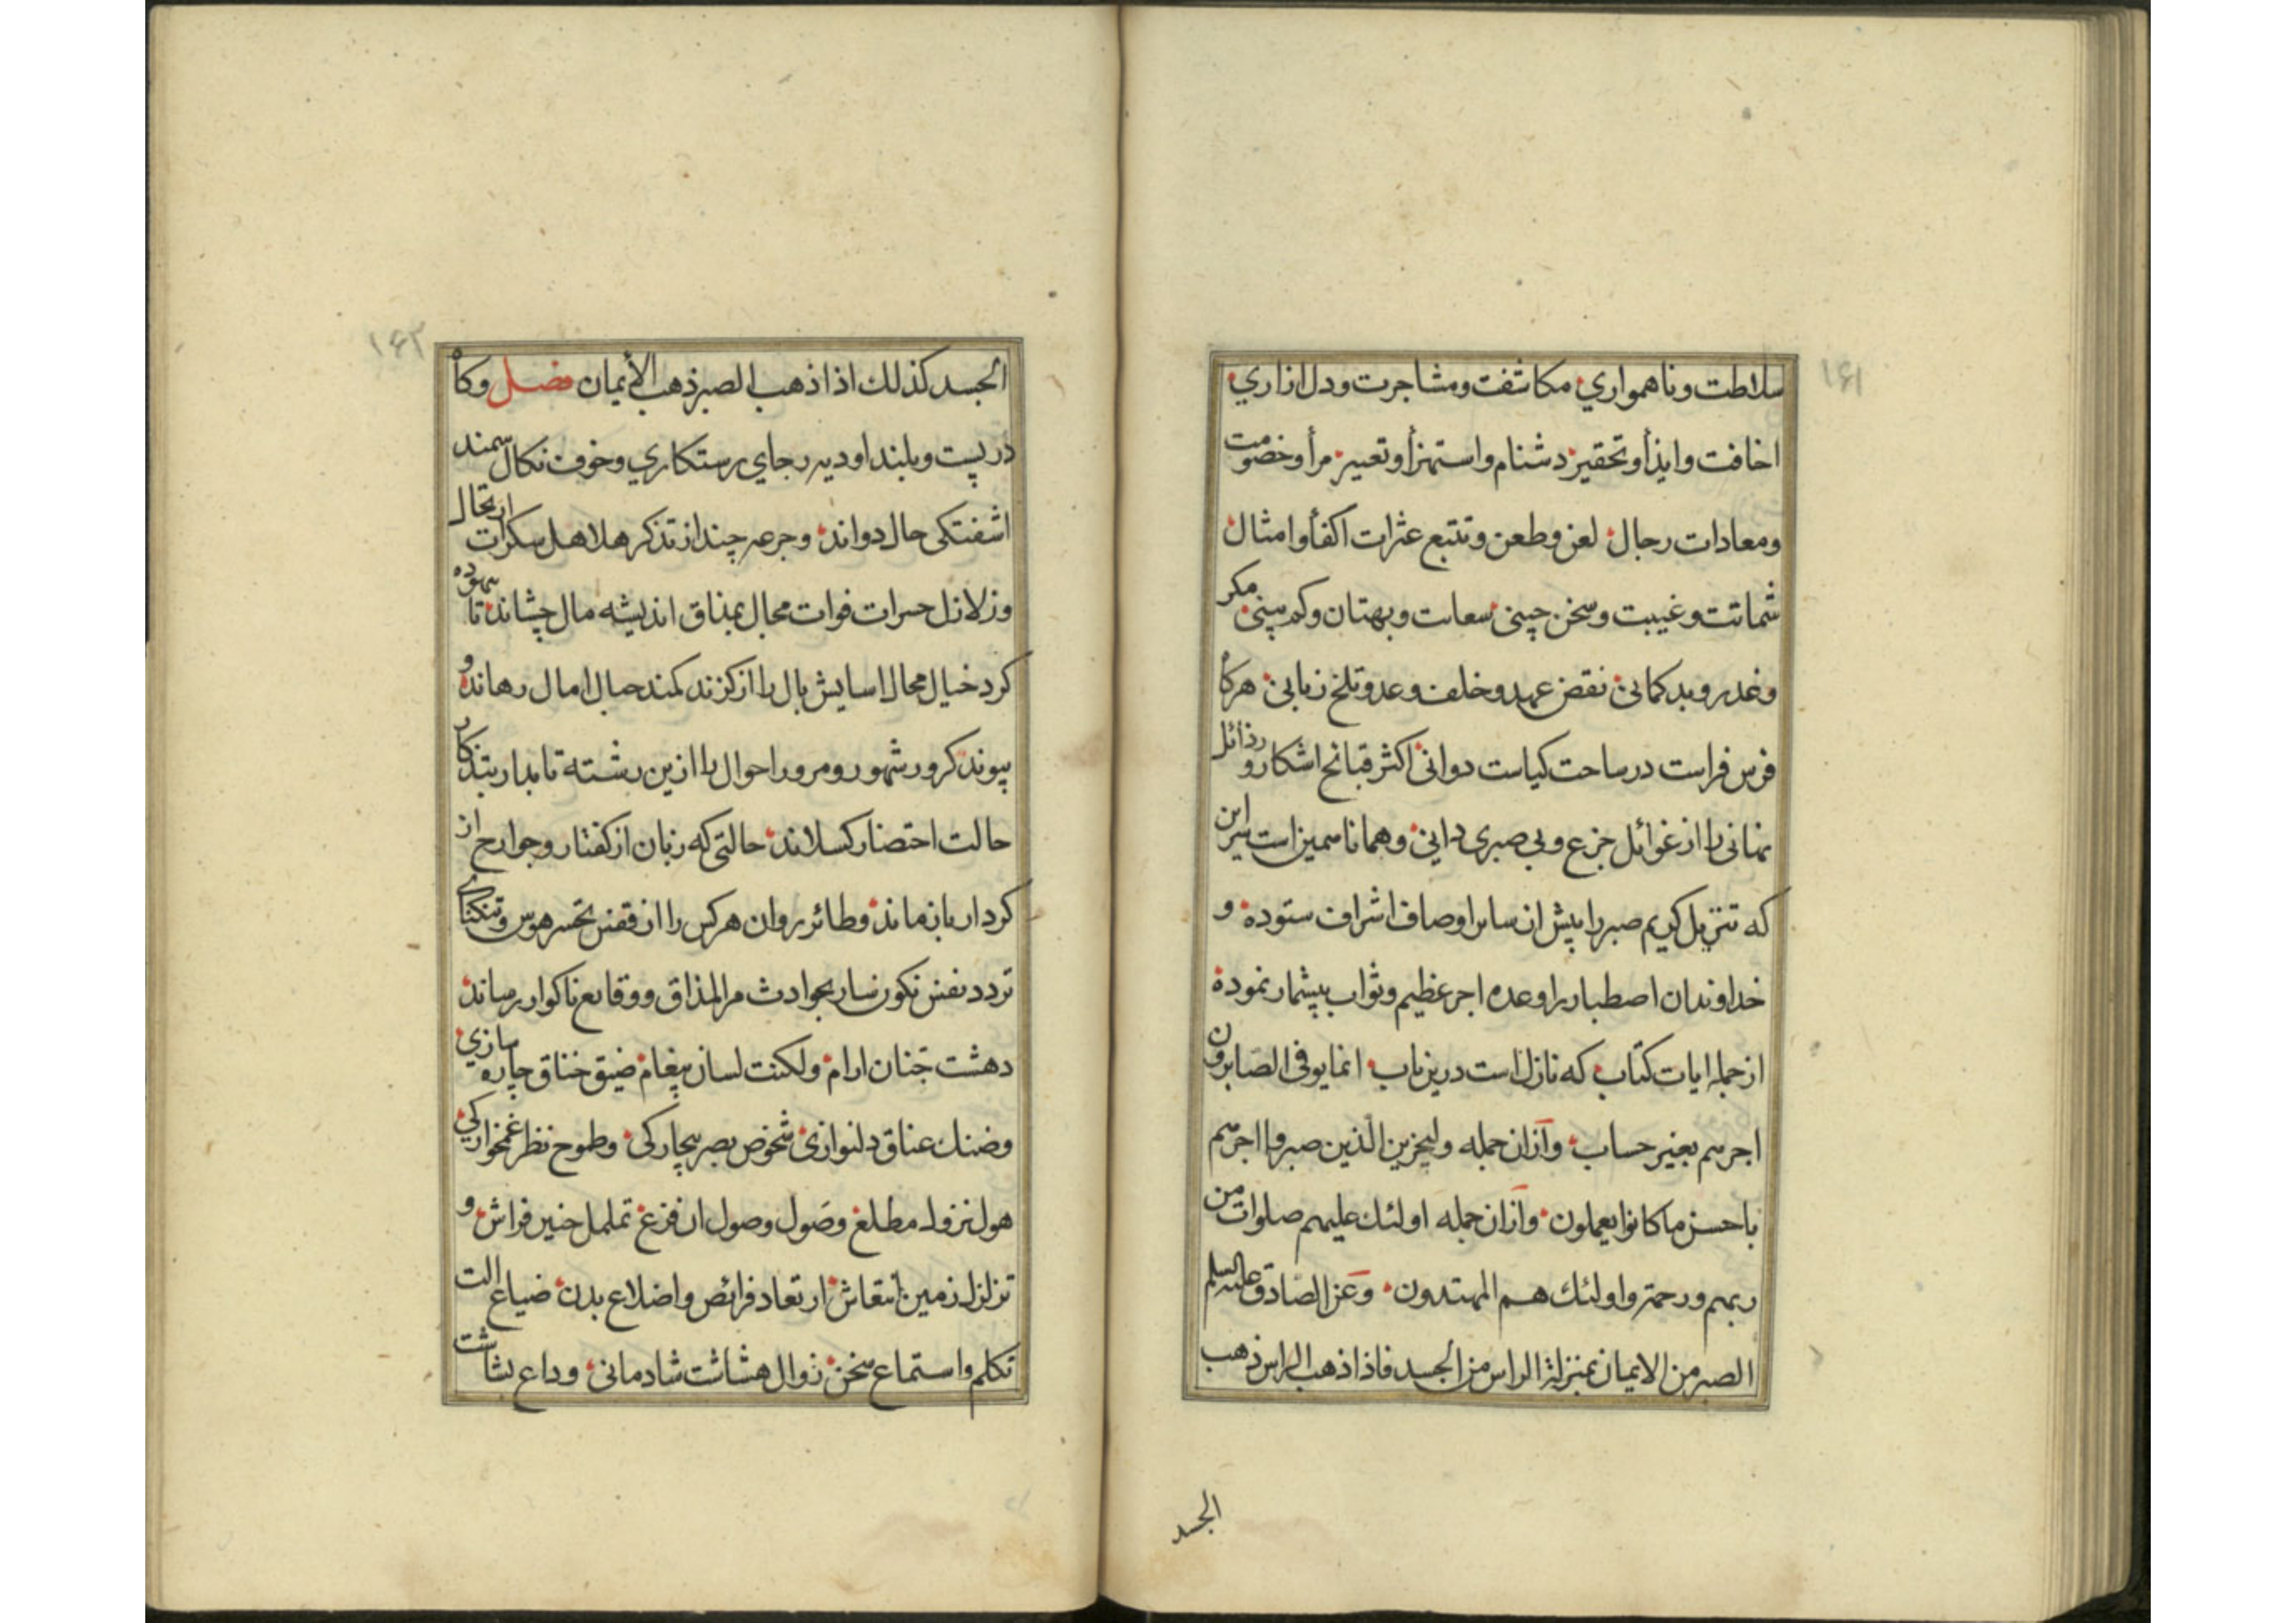 ۱۶۱
سلاطت و ناهمواری مکاشفت و مشاجرت و دل ازاری
اخافت و ایذأ و تحقیر دشنام و استهزأ و تعییر مرأ و خصومت
و معادات رجال لعن و طعن و تتبع عثرات اکفأ و امثال
شماتت و غیبت و سخن چینی سعایت و بهتان و کم بینی مکر
و غدر و بد کمانی نقض عهد و خلف وعد و تلخ زبانی هرکاه
فرس فراست در ساحت کیاست دوانی اکثر قبائح اشکار و رذائل
نهانی را از غوائل جزع و بی صبری دانی و همانا همین است سر این
که تنزیل کریم صبر را بیش از سایر اوصاف اشراف ستوده و
خداوندان اصطبار را وعده اجر عظیم و ثواب بیشمار نموده
از جمله ایات کتاب که نازل است درین باب انما یوفی الصابرون
اجرهم بغیر حساب و ازان جمله ولیجزین الذین صبروا اجرهم
باحسن ما کانوا یعملون و ازان جمله اولئك علیهم صلوات من
ربهم و رحمة و اولئك هم المهتدون و عن الصادق علیه السلم
الصبر من الایمان بمنزلة الراس من الجسد فاذا ذهب الراس ذهب
الجسد
۱۶۲
الجسد کذلك اذا ذهب الصبر ذهب الأیمان فصل و کاه
در پست و بلند اودیه رجای رستکاری و خوف نکال سمند
اشفتکی حال دواند و جرعه چند از تذکر هلاهل سکرات ارتحال
و زلازل حسرات فوات مجال بمذاق اندیشه مال چشاند تا بیهوده
کرد خیال محال اسایش بال را از کزند کمند حبال امال رهاند و
پیوند کرور شهور و مرور احوال را ازین رشته تابدار بتذکار
حالت احتضار کسلاند حالتی که زبان از کفتار و جوارح از
کردار باز ماند و طائر روان هر کس را از قفس تحسر هوس و تنکنای
تردد نفس نکونسار بحوادث مر المذاق و وقایع ناکوار رساند
دهشت جنان ارام و لکنت لسان پیغام ضیق خناق چاره سازی
و ضنك عناق دلنوازی شخوص بصر بیچارکی و طموح نظر غمخوارکی
هول نزول مطلع و صول وصول ان فزع تململ حنین فراش و
تزلزل زمین انتعاش ارتعاد فرائص و اضلاع بدن ضیاع الت
تکلم و استماع سخن زوال هشاشت شادمانی و وداع بشاشت